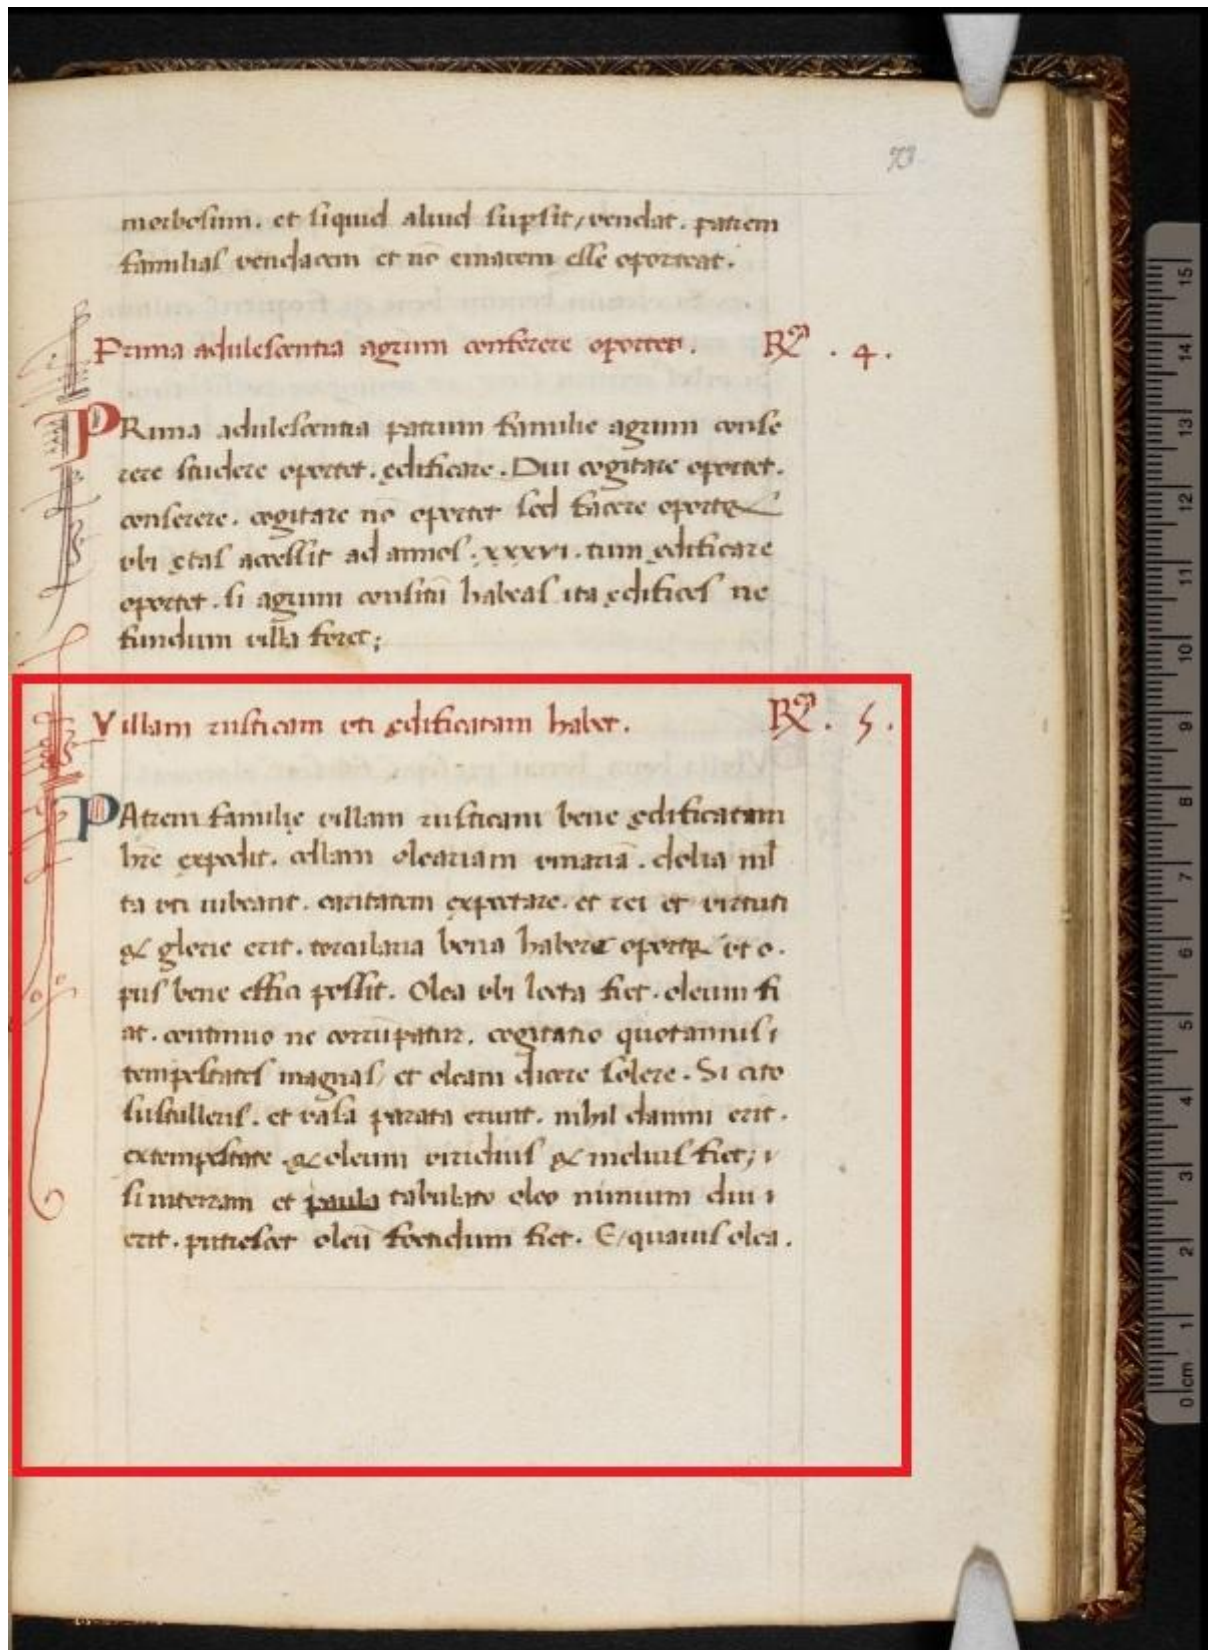 73
morbosum. et siquid aliud supsit, vendat. patrem
familias vendacem et nō emacem esse oporteat.
Prima adulescentia agrum conserere oportet. R . 4 .
PRima adulescentia patrum familie agrum conse
rere studere oportet. ędificare. Diu cogitare oportet.
conserere. cogitare nō oportet sed facere oportet
vbi ętas accessit ad annos . xxxvi . tum ędificare
oportet. si agrum consitū habeas ita ędifices ne
fundum villa foret;
Villam rusticam vti ędificatam habet. R . 5 .
PAtrem familię villam rusticam bene ędificatam
hr̄e expedit. cellam oleariam vinariā. dolia ml
ta vti iubeant. caritatem expectare. et rei et virtuti
& glorie erit. torcularia bona habere oportet vt o.
pus bene effici possit. Olea vbi lecta fiet. oleum fi
at. continuo ne corrūpatur. cogitato quotannis ı
tempestates magnas, et oleam dicere solere. Si cito
sustulleris. et vasa parata erunt. nihil damni erit.
extempestate & oleum viridius & melius fiet; ı
si interram et paula tabulato oleo nimium diu ı
erit. putrescet oleū foetidum fiet. E, quauis olea.
0 cm 1 2 3 4 5 6 7 8 9 10 11 12 13 14 15